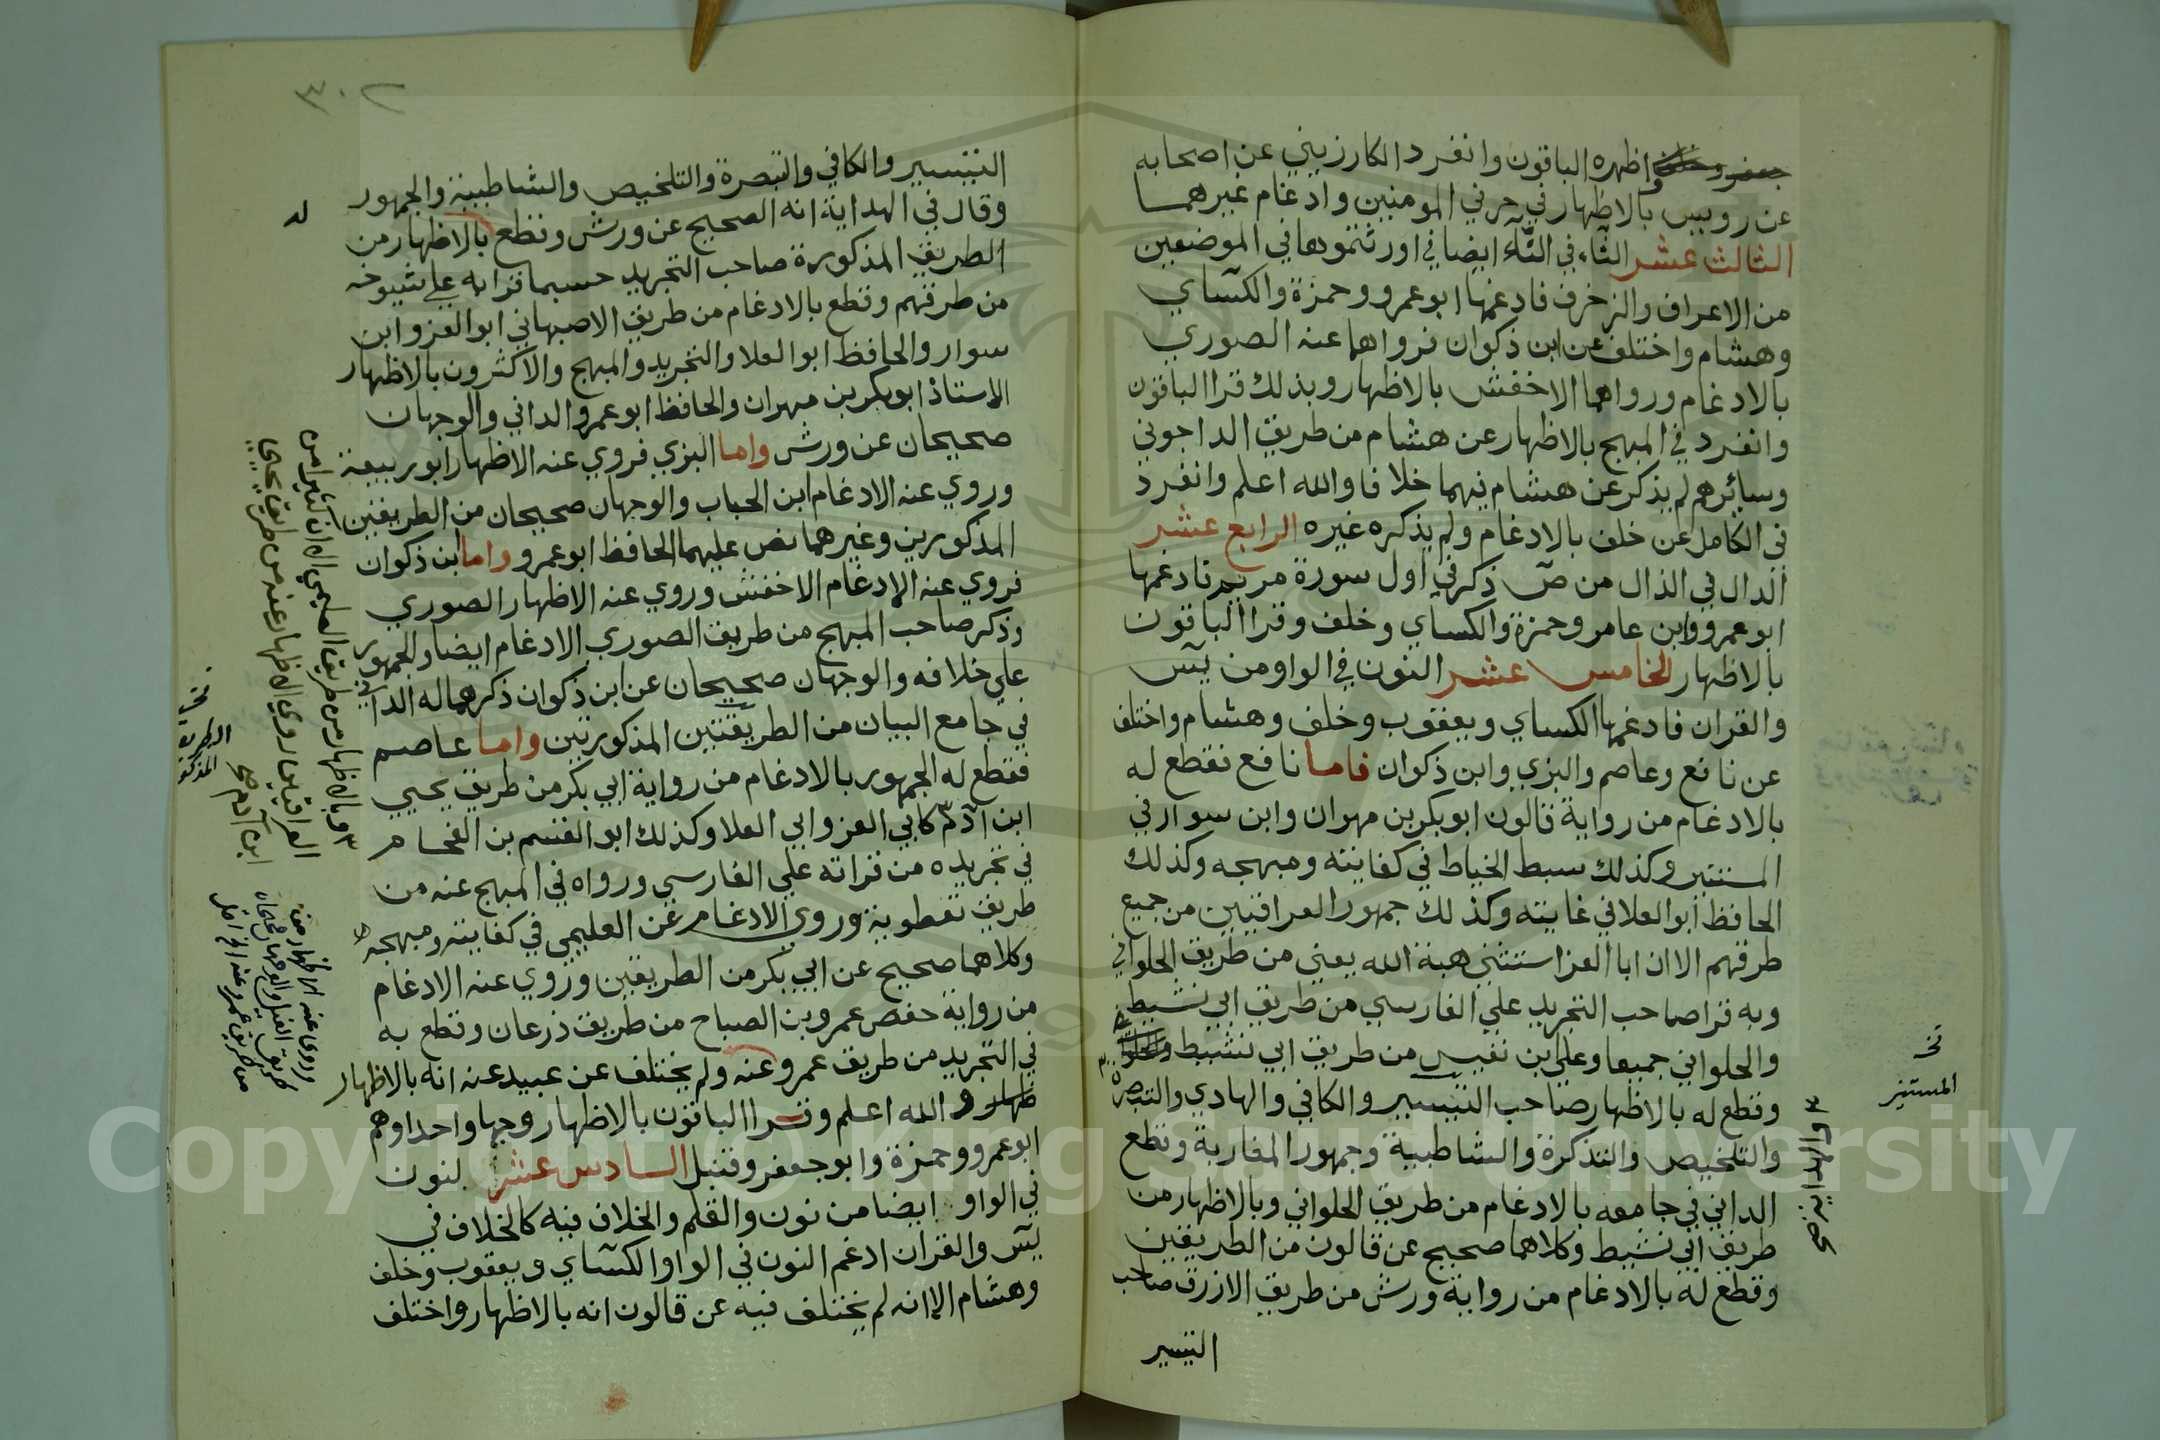 واظهره الباقون وانفرد الكارزيني عن اصحابه
عن رويس بالاظهار في حرفي المومنين وادغام غيرهما
الثالث عشر الثاء في التاء ايضا في اورثتموها في الموضعين
من الاعراف والزخرف فادغمها ابوعمرو وحمزة والكساي
وهشام واختلف عن ابن ذكوان فرواهما عنه الصوري
بالادغام ورواهما الاخفش بالاظهار وبذلك قرا الباقون
وانفرد في المبهج بالاظهار عن هشام من طريق الداجوني
وسايرهم لم يذكر عن هشام فيهما خلافا والله اعلم وانفرد
في الكامل عن خلف بالادغام ولم يذكره غيره الرابع عشر
الدال في الذال من ص ذكر في اول سورة مريم فادغمها
ابوعمرو وابن عامر وحمزة والكساي وخلف وقرا الباقون
بالاظهار الخامس عشر النون في الواو من يس
والقران فادغمها الكساي ويعقوب وخلف وهشام واختلف
عن نافع وعاصم والبزي وابن ذكوان فاما نافع فقطع له
بالادغام من رواية قالون ابوبكر بن مهران وابن سوار في
المستنير وكذلك سبط الخياط في كفايته ومبهجه وكذلك
الحافظ ابوالعلا في غايته وكذلك جمهور العراقيين من جميع
طرقهم الا ان ابا العز استثني هبة الله يعني من طريق الحلواني
وبه قرا صاحب التجريد علي الفارسي من طريق ابي نشيط
والحلواني جميعا وعلي ابن نفيس من طريق ابي نشيط
وقطع له بالاظهار صاحب التيسير والكافي والهادي والتبصرة
والتلخيص والتذكرة والشاطبية وجمهور المغاربة وقطع
الداني في جامعه بالادغام من طريق الحلواني وبالاظهار من
طريق ابي نشيط وكلاهما صحيح عن قالون من الطريقين
وقطع له بالادغام من رواية ورش من طريق الازرق صاحب
التيسير
نخـ
المستنير
والهداية صح
٣٠٢
التيسير والكافي والتبصرة والتلخيص والشاطبية والجمهور
وقال في الهداية انه الصحيح عن ورش وقطع بالاظهار من
الطريق المذكورة صاحب التجريد حسبما قرا به علي شيوخه
من طرقهم وقطع بالادغام من طريق الاصبهاني ابوالعز وابن
سوار والحافظ ابوالعلا والتجريد والمبهج والاكثرون بالاظهار
الاستاذ ابوبكر بن مهران والحافظ ابوعمرو الداني والوجهان
صحيحان عن ورش واما البزي فروي عنه الاظهار ابو ربيعة
وروي عنه الادغام ابن الحباب والوجهان صحيحان من الطريقين
المذكورين وغيرهما نص عليهما الحافظ ابوعمرو واما ابن ذكوان
فروي عنه الادغام الاخفش وروي عنه الاظهار الصوري
وذكر صاحب المبهج من طريق الصوري الادغام ايضا والجمهور
علي خلافه والوجهان صحيحان عن ابن ذكوان ذكرهما له الداني
في جامع البيان من الطريقتين المذكورتين واما عاصم
فقطع له الجمهور بالادغام من رواية ابي بكر من طريق يحيي
ابن آدم كابي العز وابي العلا وكذلك ابو القسم بن الفحام
في تجريده من قراته علي الفارسي ورواه في المبهج عنه من
طريق نفطوية وروي الادغام عن العليمي في كفايته ومبهجه
وكلاهما صحيح عن ابي بكر من الطريقين وروي عنه الادغام
من رواية حفص عمرو بن الصباح من طريق ذرعان وقطع به
في التجريد من طريق عمرو عنه ولم يختلف عن عبيد عنه انه بالاظهار
والله اعلم وقرا الباقون بالاظهار وجها واحدا وهم
ابوعمرو وحمزة وابوجعفر وقنبل السادس عشر لنون
في الواو ايضا من نون والقلم والخلاف فيه كالخلاف في
يس والقران ادغم النون في الواو الكساي ويعقوب وخلف
وهشام الا انه لم يختلف فيه عن قالون انه بالاظهار واختلف
وبالاظهار من طريق العليمي الا ان كثيرا من
العراقيين روي الاظهار عنه من طريق يحيي
ابن آدم صح
نخـ
الطريق
المذكو
وروي عنه الاظهار من
طريق الفيل والوجهان صحيحان
من طريق عمرو عنه
Copyright © King Saud University